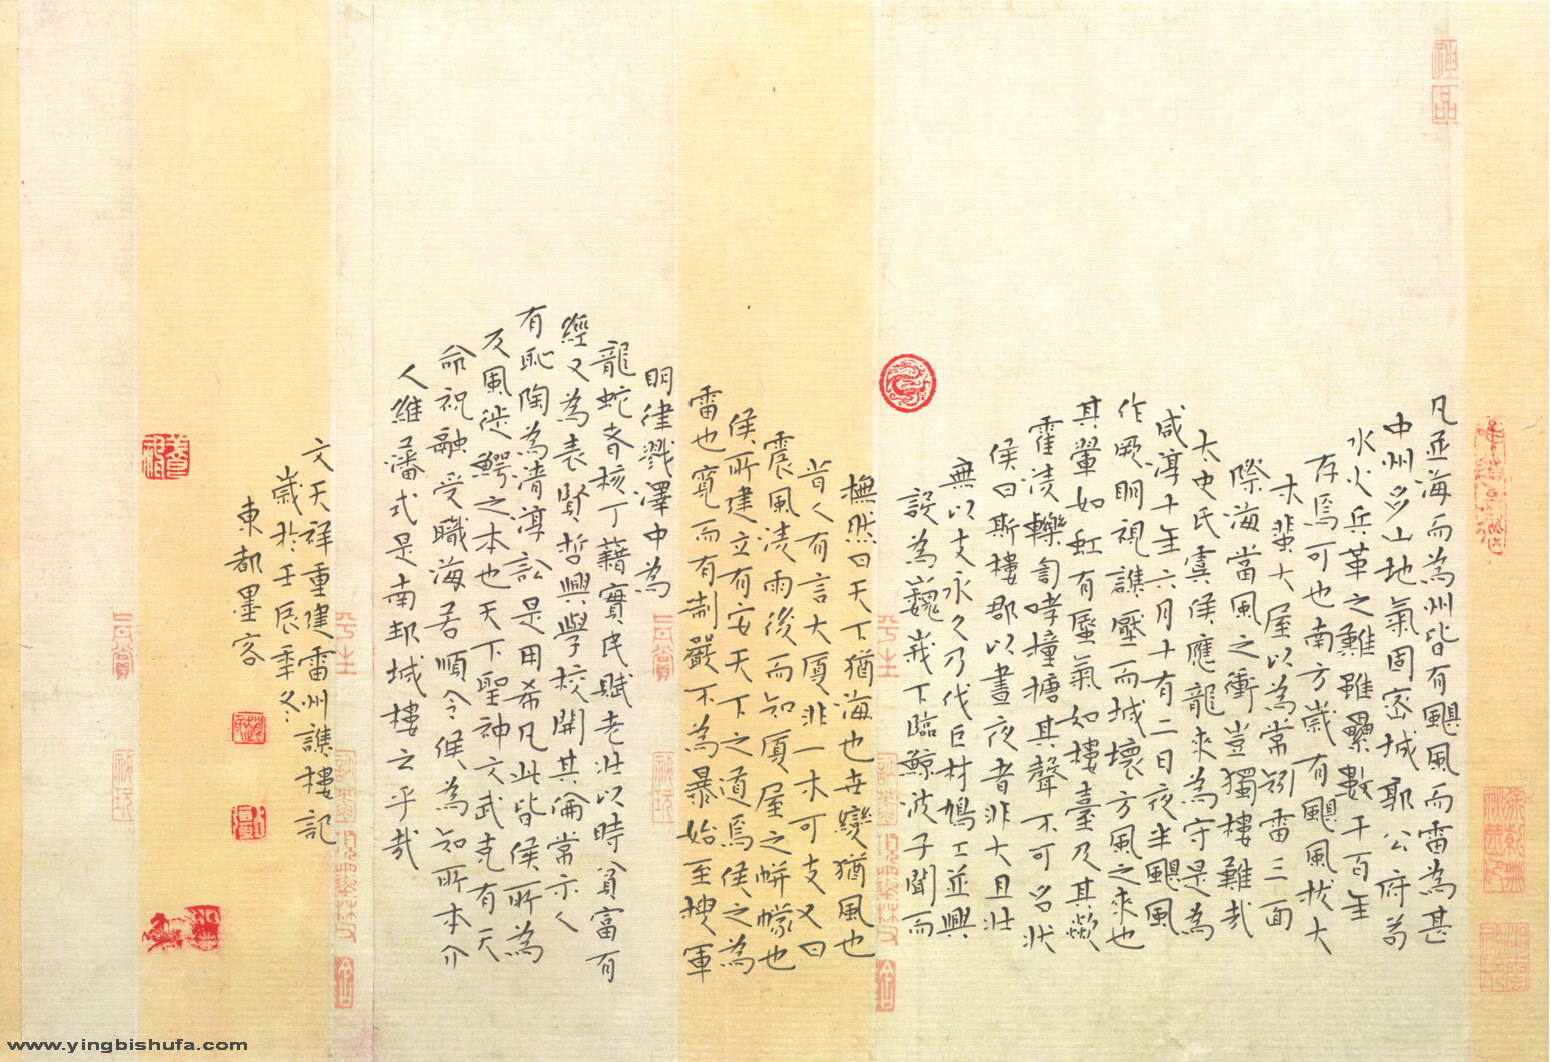 凡並海而為州皆有颶風而雷為甚
中州多山地氣固密城郭公府苟
水火兵革之難雖纍數千百年
存焉可也南方歲有颶風拔大
木蜚大屋以為常矧雷三面
際海當風之衝豈獨樓難哉
太史氏虞侯應龍來為守是為
咸淳十年六月十有二日夜半颶風
作厥明視譙壓而城壞方風之來也
其暈如虹有壓氣如樓臺及其歘
霍淩轢訇哮撞搪其聲不可名狀
侯曰斯樓郡以晝夜者非大且壯
無以支永久乃伐巨材鳩工並興
設為巍峩下臨鯨波子聞而
憮然曰天下猶海也世變猶風也
昔人有言大廈非一木可支又曰
震風淩雨後而知廈屋之帡幪也
侯所建立有安天下之道焉侯之為
雷也寬而有制嚴不為暴始至搜軍
明律戮澤中為
龍蛇者核丁籍實民賦老壯以時貧富有
經又為表賢哲興學校開其倫常示人
有恥陶為清淳訟是用希凡此皆侯所為
反風徙鱷之本也天下聖神文武克有天
命祝融受職海若順令侯為知所本介
人維藩式是南邦城樓云乎哉
文天祥重建雷州譙樓記
歲於壬辰年冬
東都墨客
神品
www.yingbishufa.com